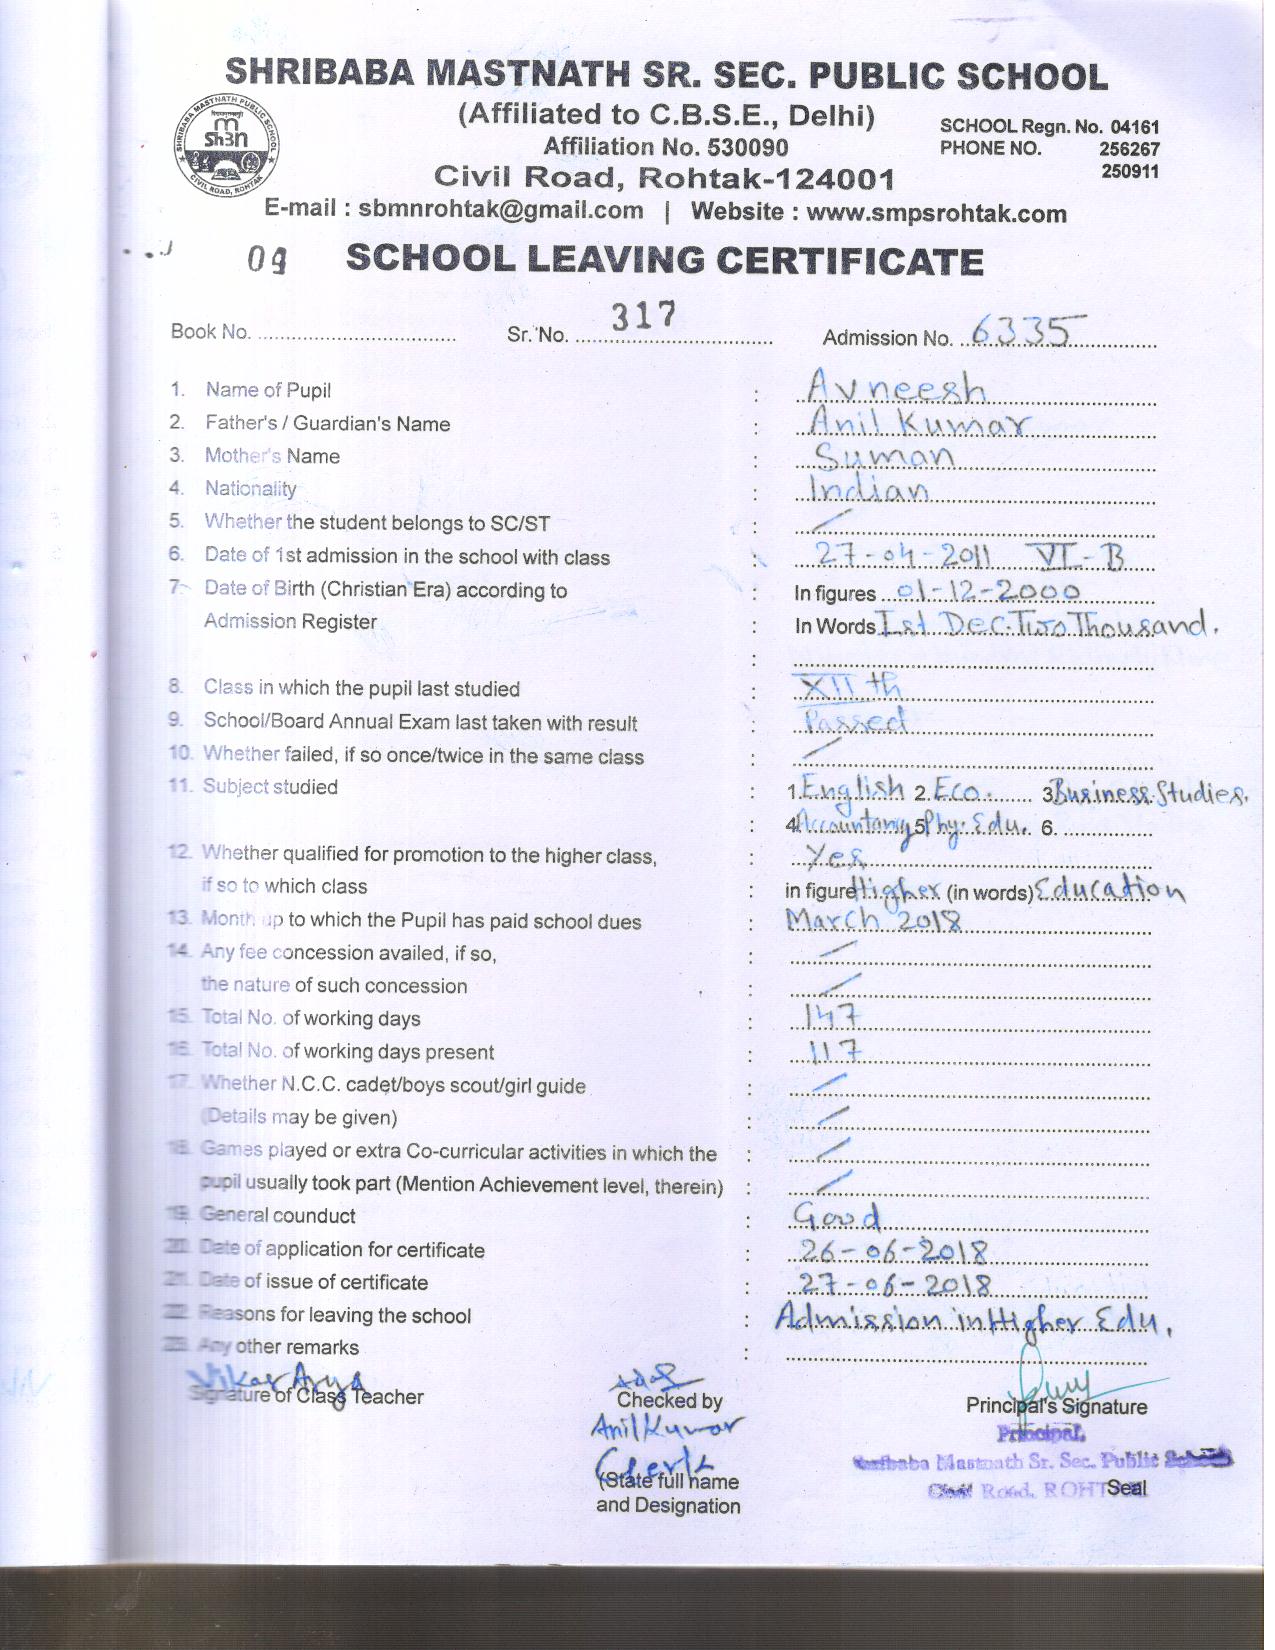 SHRIBABA MASTNATH SR. SEC. PUBLIC SCHOOL
(Affiliated to C.B.S.E., Delhi)
Affiliation No. 530090
SCHOOL Regn. No. 04161
PHONE NO. 256267
250911
Civil Road, Rohtak-124001
E-mail : sbmnrohtak@gmail.com | Website : www.smpsrohtak.com
09 SCHOOL LEAVING CERTIFICATE
Book No. Sr. No. 317 Admission No. 6335
1. Name of Pupil : Avneesh
2. Father's / Guardian's Name : Anil Kumar
3. Mother's Name : Suman
4. Nationality : Indian
5. Whether the student belongs to SC/ST : /
6. Date of 1st admission in the school with class : 27-04-2011 VI-B
7. Date of Birth (Christian Era) according to : In figures 01-12-2000
Admission Register : In Words Ist Dec. Two Thousand.
:
8. Class in which the pupil last studied : XII th
9. School/Board Annual Exam last taken with result : Passed
10. Whether failed, if so once/twice in the same class : /
11. Subject studied 1. English 2. Eco. 3. Business Studies.
: 4. Accountancy 5. Phy. Edu. 6.
12. Whether qualified for promotion to the higher class, : Yes
if so to which class : in figure Higher (in words) Education
13. Month up to which the Pupil has paid school dues : March 2018
14. Any fee concession availed, if so, : /
the nature of such concession : /
15. Total No. of working days : 147
16. Total No. of working days present : 117
17. Whether N.C.C. cadet/boys scout/girl guide : /
(Details may be given) : /
18. Games played or extra Co-curricular activities in which the : /
pupil usually took part (Mention Achievement level, therein) : /
19. General counduct : Good
20. Date of application for certificate : 26-06-2018
21. Date of issue of certificate : 27-06-2018
22. Reasons for leaving the school : Admission in Higher Edu.
23. Any other remarks :
Vikas Arya
Signature of Class Teacher Checked by Principal's Signature
Anil Kumar
Principal,
Clerk
Shribaba Mastnath Sr. Sec. Public School
(State full name
Civil Road, ROHTAK Seal
and Designation